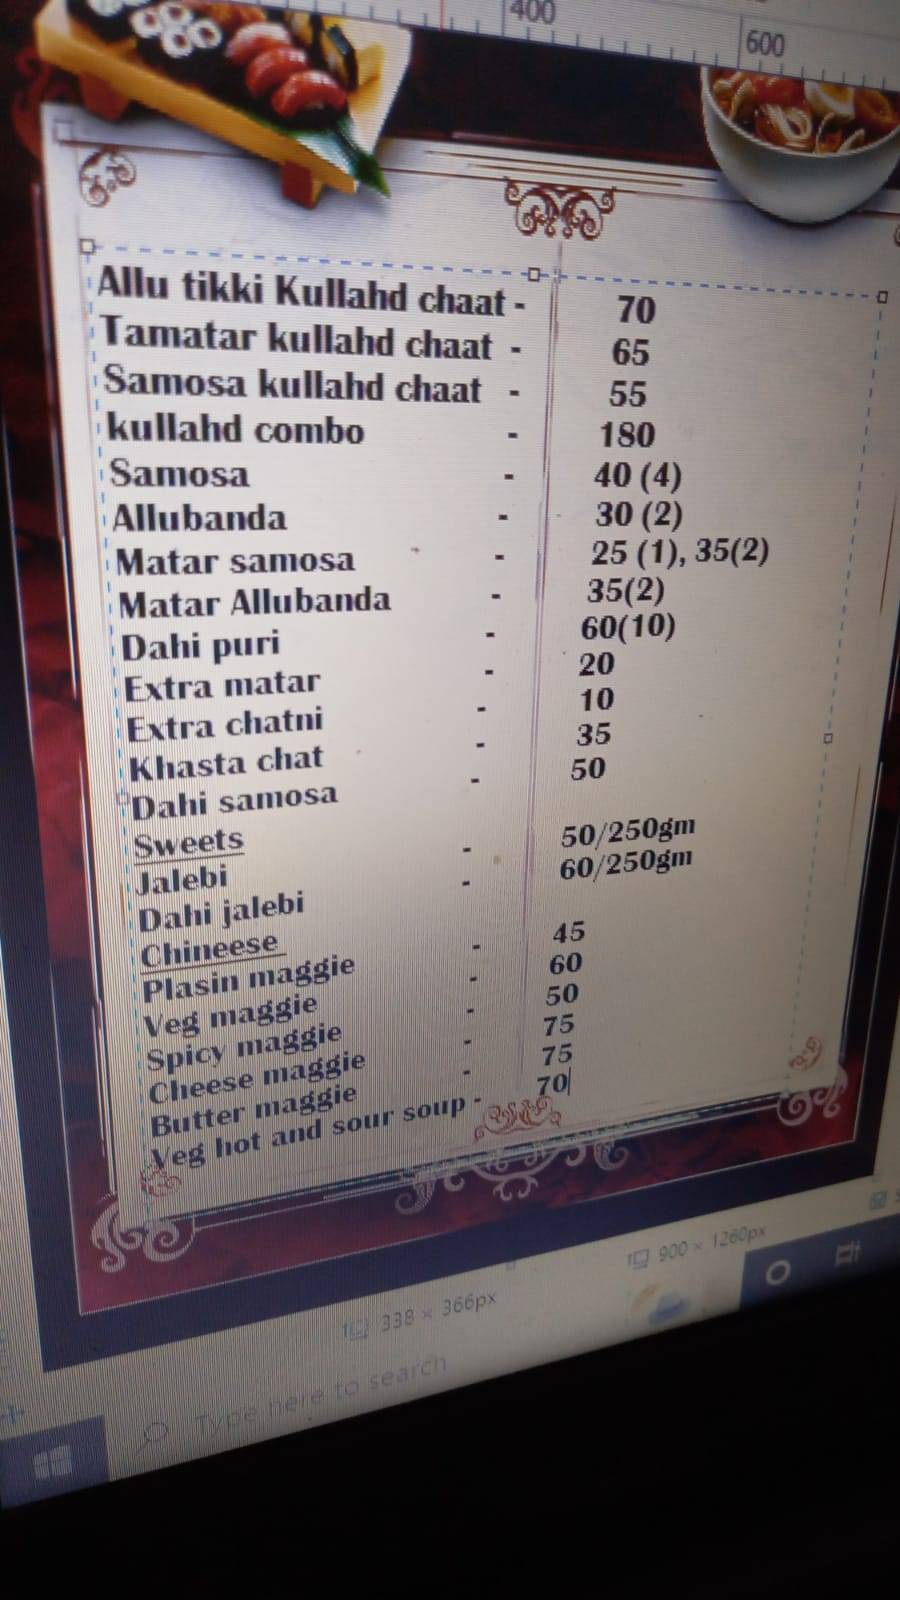 400
600
Allu tikki Kullahd chaat - 70
Tamatar kullahd chaat - 65
Samosa kullahd chaat - 55
kullahd combo - 180
Samosa - 40 (4)
Allubanda - 30 (2)
Matar samosa - 25 (1), 35(2)
Matar Allubanda - 35(2)
Dahi puri - 60(10)
Extra matar - 20
Extra chatni - 10
Khasta chat - 35
Dahi samosa - 50
Sweets
Jalebi - 50/250gm
Dahi jalebi - 60/250gm
Chineese
Plasin maggie - 45
Veg maggie - 60
Spicy maggie - 50
Cheese maggie - 75
Butter maggie - 75
Veg hot and sour soup - 70
338 × 366px
900 × 1260px
Type here to search